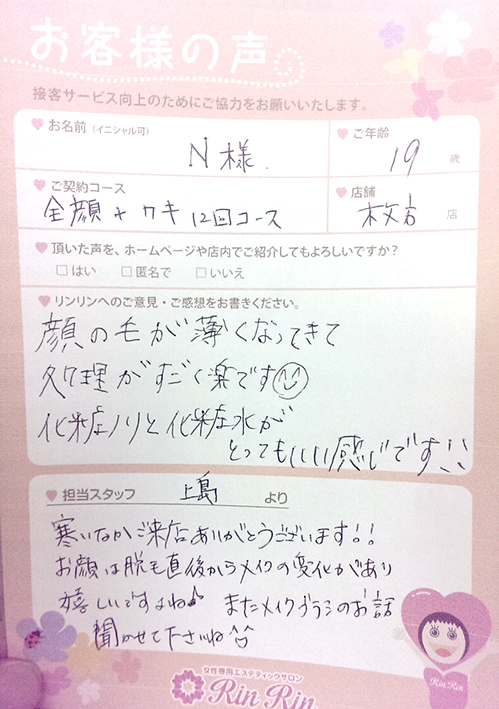 お客様の声
接客サービス向上のためにご協力をお願いいたします。
お名前（イニシャル可）
N様.
ご年齢
19 歳
ご契約コース
全顔+ワキ 12回コース
店舗
枚方 店
頂いた声を、ホームページや店内でご紹介してもよろしいですか？
□はい □匿名で □いいえ
リンリンへのご意見・ご感想をお書きください。
顔の毛が薄くなってきて
処理がすごく楽です
化粧ノリと化粧水が
とってもいい感じです!!
担当スタッフ 上島 より
寒いなかご来店ありがとうございます!!
お顔は脱毛直後からメイクの変化があり
嬉しいですよね♪ またメイクブラシのお話
聞かせて下さいね
女性専用エステティックサロン
Rin Rin
Rin Rin